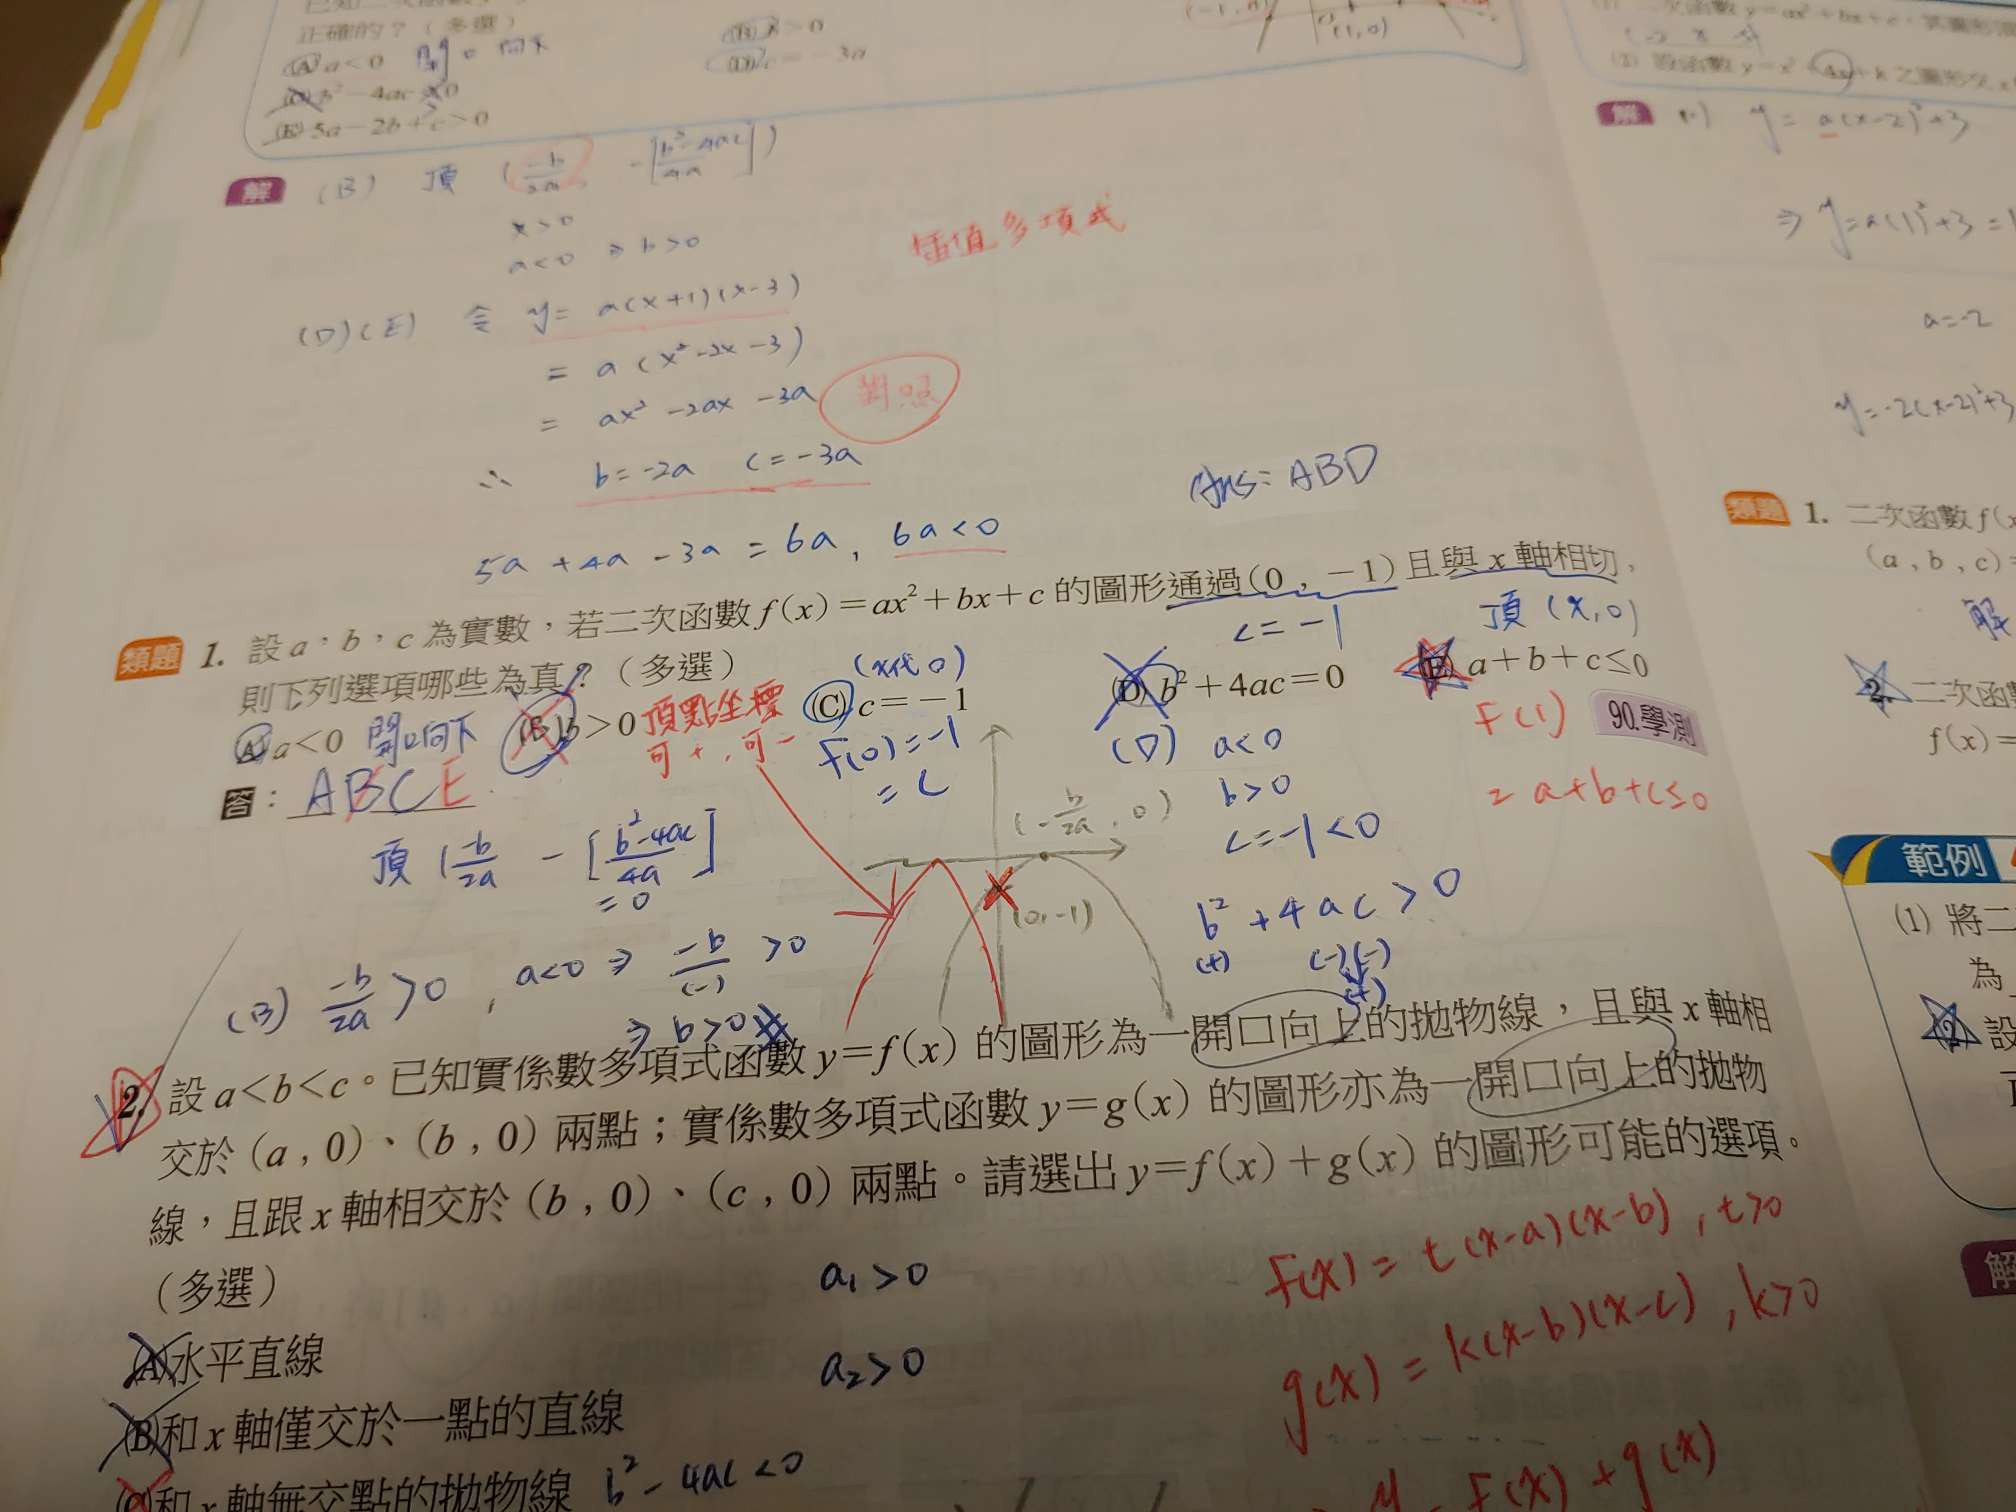 正確的？（多選）
(A) a<0 開口向下
(B) b>0
(C) b²-4ac
(D) c=-3a
(E) 5a-2b+c>0
(-1,0)
(1,0)
解 (B) 頂 (-b/2a, -[b²-4ac/4a])
x>0
a<0 ⇒ b>0
插值多項式
(D)(E) 令 y= a(x+1)(x-3)
= a(x²-2x-3)
= ax²-2ax-3a 對照
∴ b=-2a c=-3a
Ans: ABD
5a+4a-3a=6a, 6a<0
類題 1. 設 a，b，c 為實數，若二次函數 f(x)=ax²+bx+c 的圖形通過(0，-1)且與 x 軸相切，
c=-1 頂(x,0)
則下列選項哪些為真？（多選）
(x代0)
(A) a<0 開口向下 (B) b>0 頂點坐標 可+,可- (C) c=-1 (D) b²+4ac=0 (E) a+b+c≤0
F(0)=-1
=c
F(1)
= a+b+c≤0
90.學測
答：ABCE
(D) a<0
b>0
c=-1<0
b²+4ac>0
(+) (-)(-)
(+)
頂(-b/2a -[b²-4ac/4a]
=0
(-b/2a, 0)
(0,-1)
(B) -b/2a>0, a<0 ⇒ -b/(-) >0
⇒ b>0 #
2. 設 a<b<c。已知實係數多項式函數 y=f(x) 的圖形為一開口向上的拋物線，且與 x 軸相
交於 (a，0)、(b，0) 兩點；實係數多項式函數 y=g(x) 的圖形亦為一開口向上的拋物
線，且跟 x 軸相交於 (b，0)、(c，0) 兩點。請選出 y=f(x)+g(x) 的圖形可能的選項。
（多選）
a₁>0
a₂>0
F(x)= t(x-a)(x-b), t>0
g(x)= k(x-b)(x-c), k>0
F(x)+g(x)
(A)水平直線
(B)和 x 軸僅交於一點的直線
(C)和 x 軸無交點的拋物線 b²-4ac<0
(2) 設函數 y=x²+4x+k 之圖形交
解 (1) y= a(x-2)²+3
⇒ y=a(1)²+3=1
a=-2
y=-2(x-2)²+3
類題 1. 二次函數 f(x
(a，b，c)=
解
2. 二次函
f(x)=
範例
(1) 將二
為
(2) 設
解